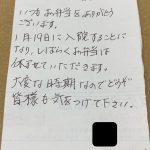 いつもお弁当をありがとう
ございます。
1月19日に入院することに
なり、しばらくお弁当は
休ませていただきます。
大変な時期なのでどうぞ
皆様も気をつけて下さい。